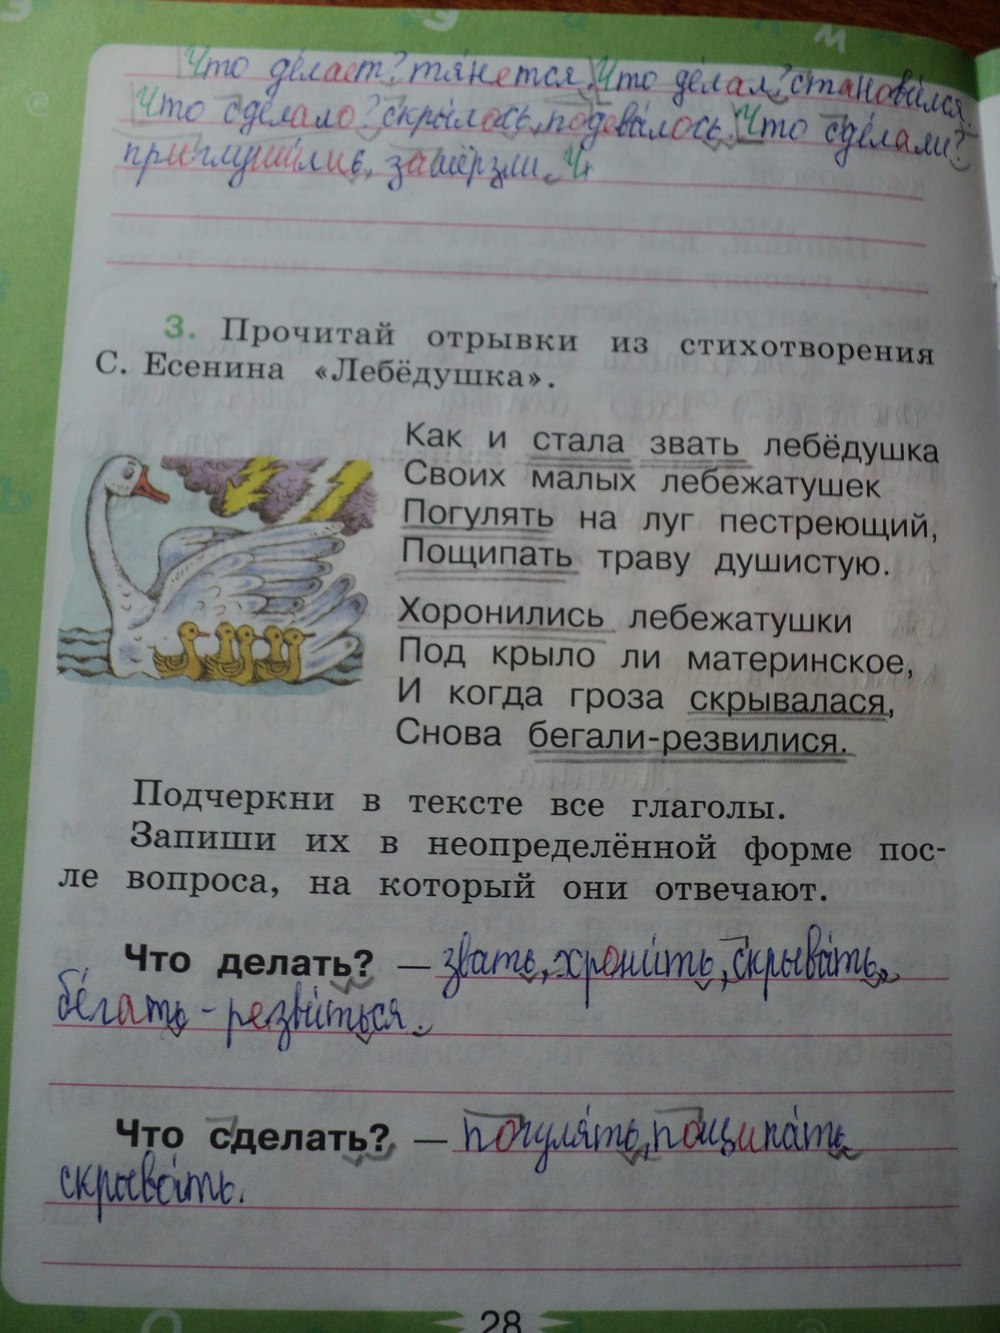 Что делает? тянется. Что делал? становился.
Что сделало? скрылось, подевалось. Что сделали?
приглушились, замёрзли. Ч
3. Прочитай отрывки из стихотворения
С. Есенина «Лебёдушка».
Как и стала звать лебёдушка
Своих малых лебежатушек
Погулять на луг пестреющий,
Пощипать траву душистую.
Хоронились лебежатушки
Под крыло ли материнское,
И когда гроза скрывалася,
Снова бегали-резвилися.
Подчеркни в тексте все глаголы.
Запиши их в неопределённой форме пос-
ле вопроса, на который они отвечают.
Что делать? — звать, хронить, скрывать,
бегать - резвиться.
Что сделать? — погулять, пощипать
скрывать.
28